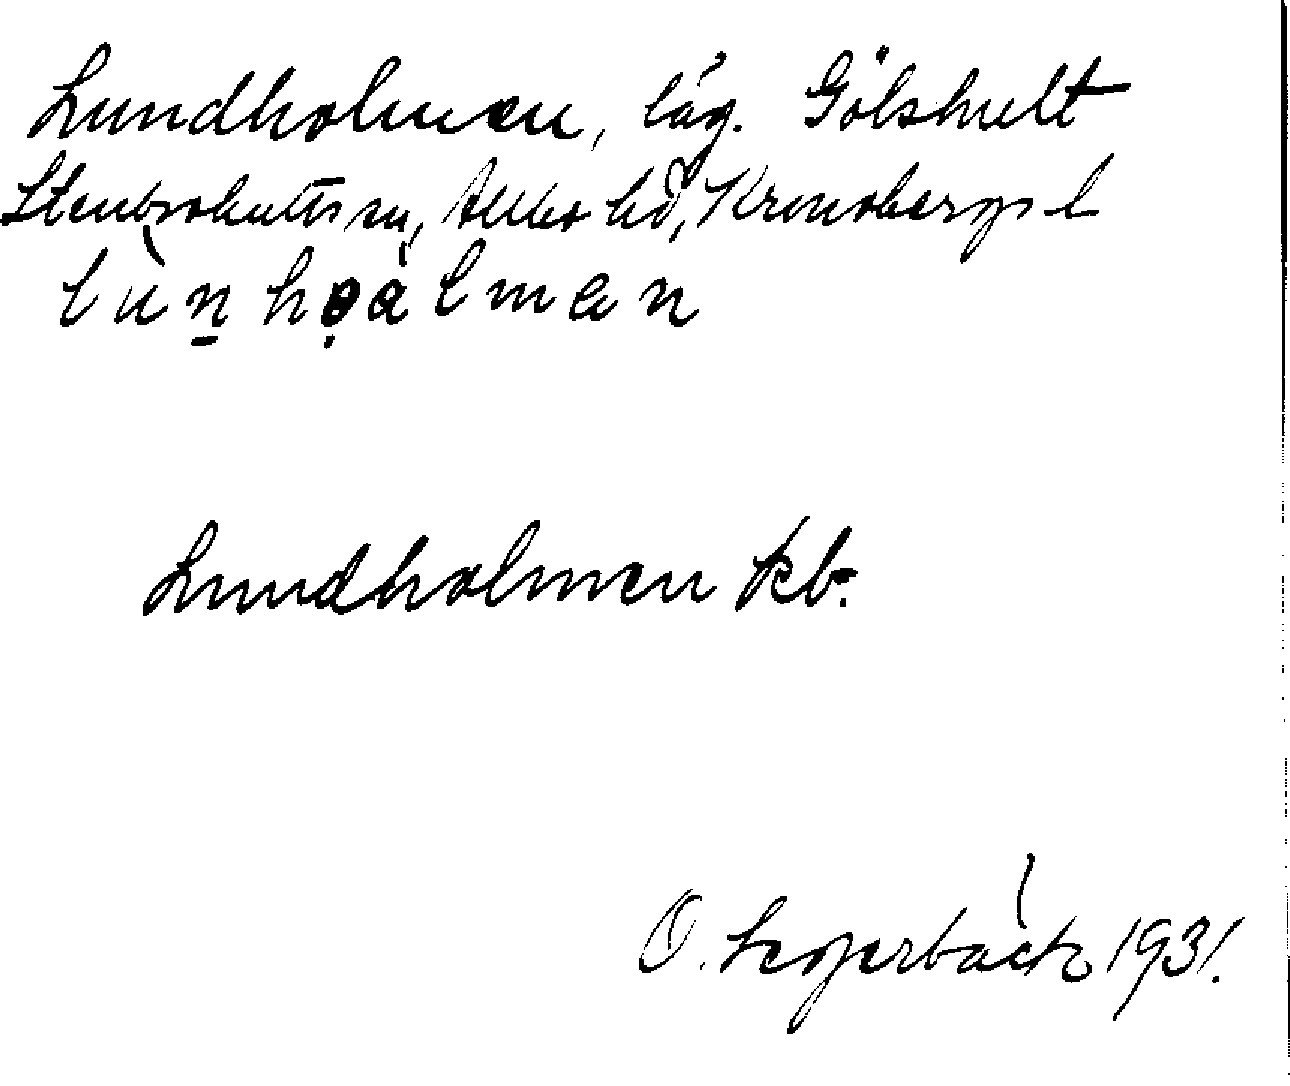 Lundholmen, låg. Gölshult
Stenbrohults sn, Allbo hd, Kronobergs l
lùn̠họàlmen
Lundholmen kb.
O. 1931.